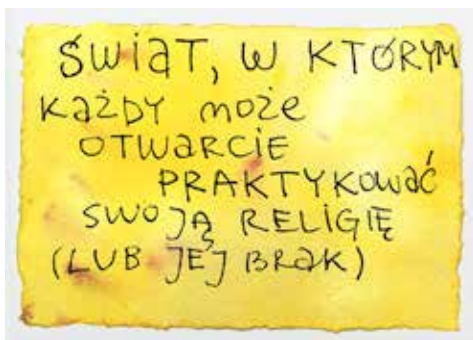 ŚWIAT, W KTÓRYM
KAŻDY MOŻE
OTWARCIE
PRAKTYKOWAĆ
SWOJĄ RELIGIĘ
(LUB JEJ BRAK)